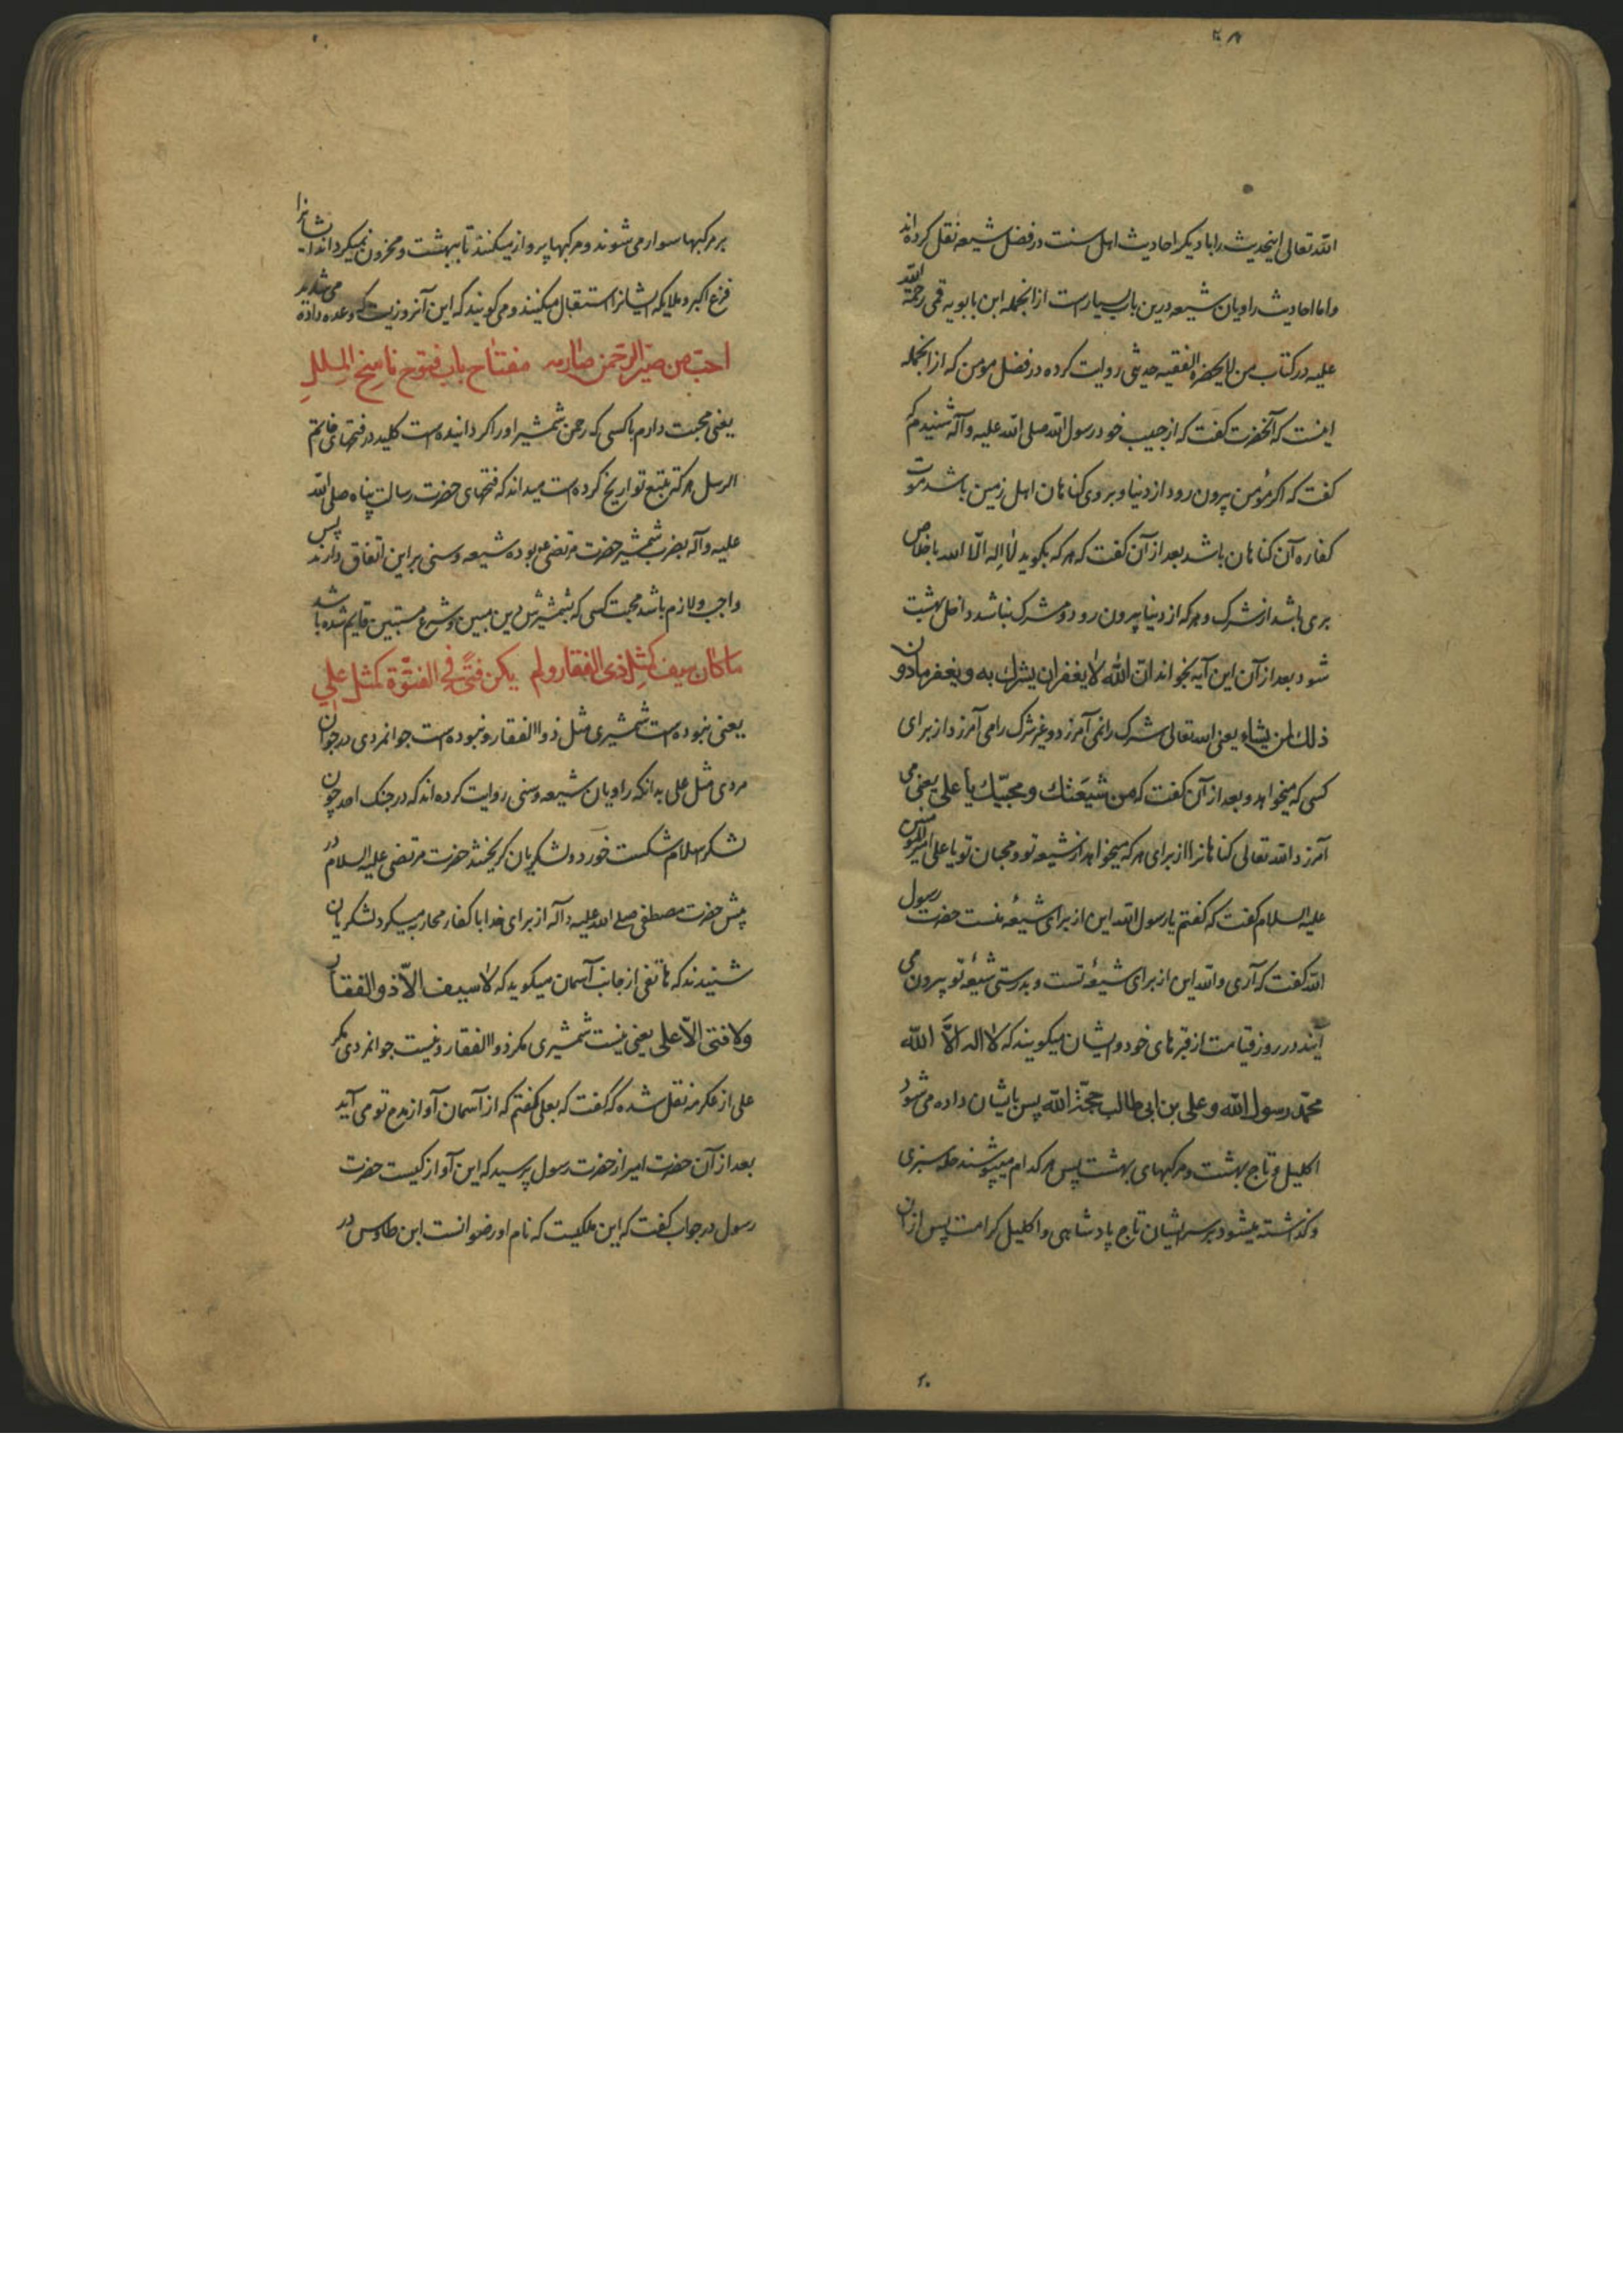 ۲۸
الله تعالی اینحدیث را با دیکر احادیث اهل سنت در فضل شیعه نقل کرده‌اند
و اما احادیث راویان شیعه درین باب بسیار است از انجمله ابن بابویه قمی رحمة الله
علیه در کتاب من لا یحضره الفقیه حدیثی روایت کرده در فضل مومن که از انجمله
اینست که آنحضرت کفت که از حبیب خود رسول الله صلی الله علیه وآله شنیدم که
کفت که اکر مؤمن بیرون رود از دنیا و بر وی کناهان اهل زمین باشد موت
کفاره آن کناهان باشد بعد از آن کفت که هر که بکوید لا إله الّا الله باخلاص
بری باشد از شرک و هر که از دنیا بیرون رود و مشرک نباشد داخل بهشت
شود بعد از آن این آیه بخواند انّ الله لا یغفر ان یشرك به و یغفر ما دون
ذلك لمن یشاء یعنی الله تعالی شرک را نمی آمرزد و غیر شرک را می آمرزد از برای
کسی که میخواهد و بعد از آن کفت که من شیعتك و محبیّك یا علی یعنی می
آمرزد الله تعالی کناهانرا از برای هر که میخواهد از شیعه تو و محبان تو یا علی امیر المومنین
علیه السلام کفت که کفتم یا رسول الله این از برای شیعهٔ منست حضرت رسول
الله کفت که آری والله این از برای شیعهٔ تست و بدرستی شیعهٔ تو بیرون می
آیند در روز قیامت از قبرهای خود و ایشان میکویند که لا اله الّا الله
محمّد رسول الله و علی بن ابی طالب حجّة الله پس بایشان داده می شود
اکلیل و تاج بهشت و مرکبهای بهشت پس هر کدام میپوشند حله سبزی
و کذاشته میشود بر سر ایشان تاج پادشاهی و اکلیل کرامت پس از آن
۲۰
بر مرکبها سوار می شوند و مرکبها پرواز میکنند تا ببهشت و محزون نمیکرداند ایشانرا
فزع اکبر و ملایکه ایشانرا استقبال میکنند و می کویند که این آنروزیست که وعده داده می شدید
احبّ من صیّر الرّحمن صارمه مفتاح باب فتوح ناسخ الملل
یعنی محبت دارم با کسی که رحمن شمشیر او را کردانیده است کلید در فتحهای خاتم
الرسل هر که تتبع تواریخ کرده است میداند که فتحهای حضرت رسالت پناه صلی الله
علیه وآله بضرب شمشیر حضرت مرتضی بوده شیعه و سنی بر این اتفاق دارند پس
واجب و لازم باشد محبت کسی که بشمشیرش دین مبین و شرع مستبین قایم شده باشد
ما کان سیف کمثل ذی الفقار ولم یکن فتیً فی الفتوّة کمثل علی
یعنی نبوده است شمشیری مثل ذو الفقار و نبوده است جوانمردی در جوان
مردی مثل علی بدانکه راویان شیعه و سنی روایت کرده اند که در جنک احد چون
لشکر اسلام شکست خورد و لشکریان کریختند حضرت مرتضی علیه السلام در
پیش حضرت مصطفی صلی الله علیه وآله از برای خدا با کفار محاربه میکرد لشکریان
شنیدند که هاتفی از جانب آسمان میکوید که لا سیف الّا ذو الفقار
ولا فتی الّا علی یعنی نیست شمشیری مکر ذو الفقار و نیست جوانمردی مکر
علی از عکرمه نقل شده که کفت که بعلی کفتم که از آسمان آواز مدح تو می آید
بعد از آن حضرت امیر از حضرت رسول پرسید که این آواز کیست حضرت
رسول در جواب کفت که این ملکیست که نام او رضوانست ابن طاوس در